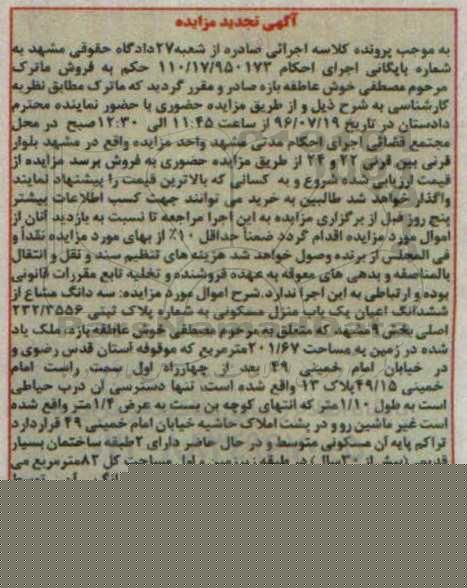 آگهی تجدید مزایده
به موجب پرونده کلاسه اجرائی صادره از شعبه ۲۷دادگاه حقوقی مشهد به
شماره بایگانی اجرای احکام ۱۱۰/۱۷/۹۵۰۱۷۳ حکم به فروش ماترک
مرحوم مصطفی خوش عاطفه بازه صادر و مقرر گردید که ماترک مطابق نظریه
کارشناسی به شرح ذیل و از طریق مزایده حضوری با حضور نماینده محترم
دادستان در تاریخ ۹۶/۰۷/۱۹ از ساعت ۱۱:۴۵ الی ۱۲:۳۰صبح در محل
مجتمع قضائی اجرای احکام مدنی مشهد واحد مزایده واقع در مشهد بلوار
قرنی بین قرنی ۲۲ و ۲۴ از طریق مزایده حضوری به فروش برسد مزایده از
قیمت ارزیابی شده شروع و به کسانی که بالاترین قیمت را پیشنهاد نمایند
واگذار خواهد شد طالبین به خرید می توانند جهت کسب اطلاعات بیشتر
پنج روز قبل از برگزاری مزایده به این اجرا مراجعه تا نسبت به بازدید آنان از
اموال مورد مزایده اقدام گردد ضمنا حداقل ۱۰٪ از بهای مورد مزایده نقداً و
فی المجلس از برنده وصول خواهد شد هزینه های تنظیم سند و نقل و انتقال
بالمناصفه و بدهی های معوقه به عهده فروشنده و تخلیه تابع مقررات قانونی
بوده و ارتباطی به این اجرا ندارد.شرح اموال مورد مزایده: سه دانگ مشاع از
ششدانگ اعیان یک باب منزل مسکونی به شماره پلاک ثبتی ۲۳۲/۳۵۵۶
اصلی بخش ۹مشهد که متعلق به مرحوم مصطفی خوش عاطفه بازه، ملک یاد
شده در زمین به مساحت ۲۰۱/۶۷مترمربع که موقوفه آستان قدس رضوی و
در خیابان امام خمینی ۴۹ بعد از چهارراه اول سمت راست امام
خمینی ۴۹/۱۵پلاک ۱۳ واقع شده است، تنها دسترسی آن درب حیاطی
است به طول ۱/۱۰متر که انتهای کوچه بن بست به عرض ۱/۴متر واقع شده
است غیر ماشین رو و در پشت املاک حاشیه خیابان امام خمینی ۴۹ قراردارد
تراکم پایه آن مسکونی متوسط و در حال حاضر دارای ۲طبقه ساختمان بسیار
قدیمی (بیش از ۳۰سال) در طبقه زیرزمین و اول مساحت کل ۸۲مترمربع می